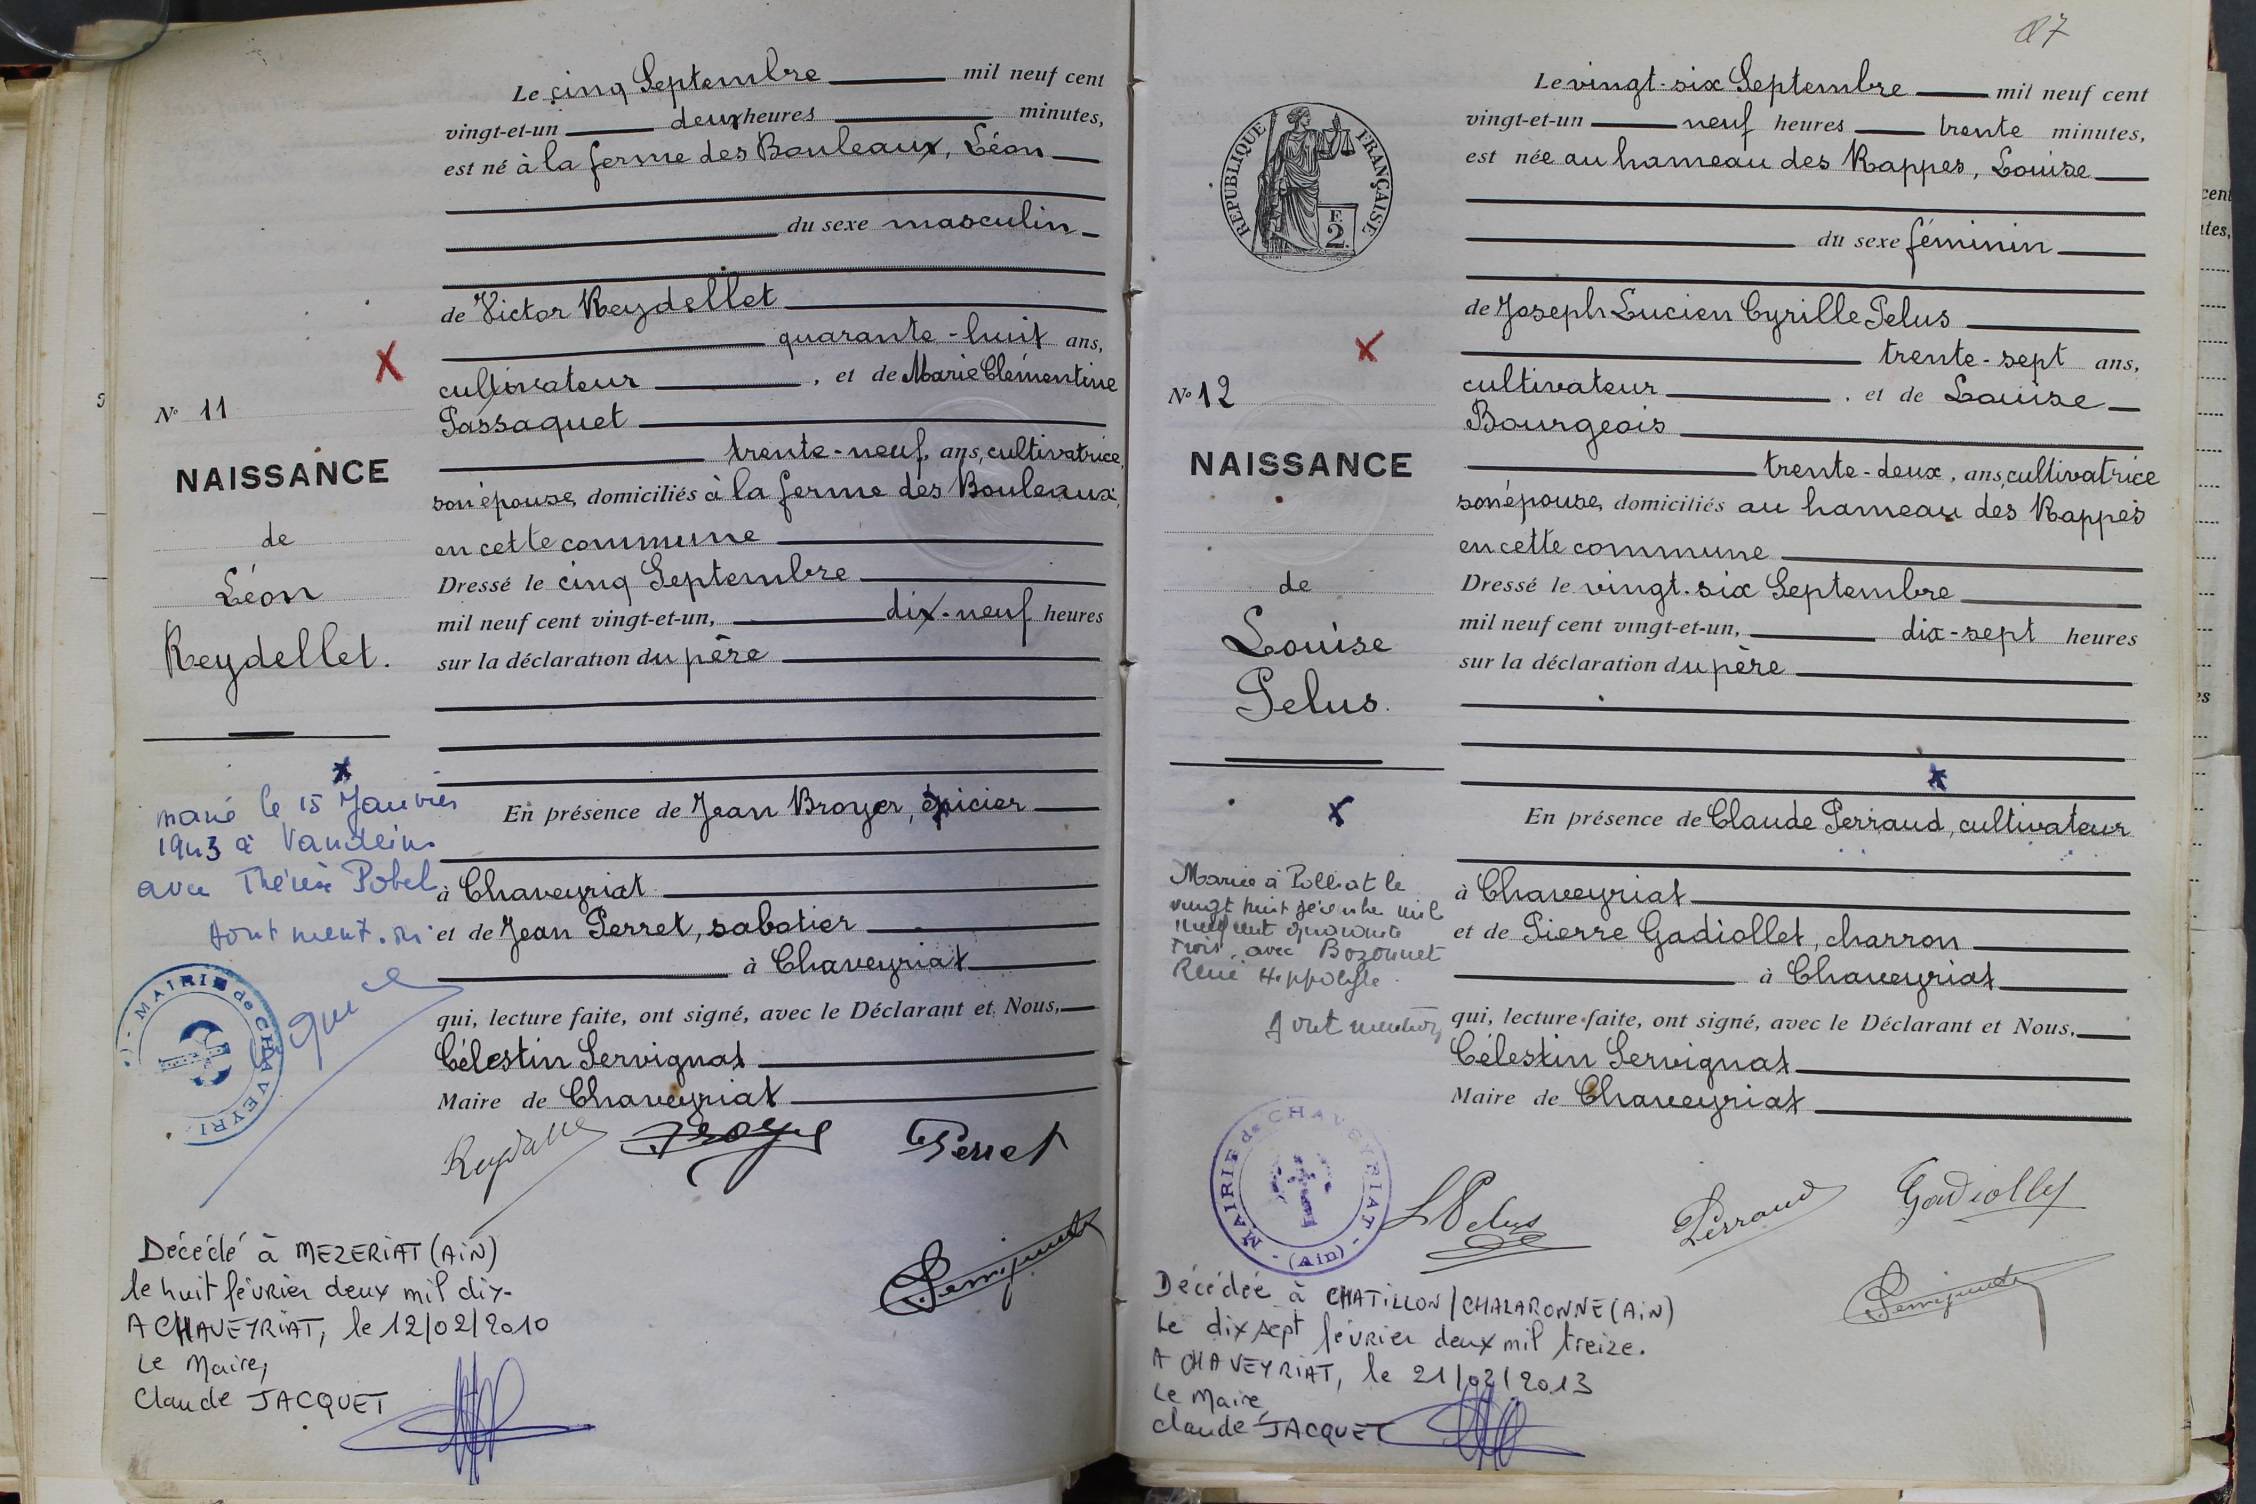 Le cinq Septembre mil neuf cent
vingt-et-un deux heures minutes,
est né à la ferme des Bouleaux, Léon
du sexe masculin
de Victor Reydellet
quarante-huit ans,
cultivateur, et de Marie Clémentine
Passaquet
trente-neuf, ans, cultivatrice,
son épouse, domiciliés à la ferme des Bouleaux,
en cette commune
Dressé le cinq Septembre
mil neuf cent vingt-et-un, dix-neuf heures
sur la déclaration du père
En présence de Jean Broyer, épicier
à Chaveyriat
et de Jean Perret, sabotier
à Chaveyriat
qui, lecture faite, ont signé, avec le Déclarant et Nous,
Célestin Servignat
Maire de Chaveyriat
Broyer
Perret
Nº 11
NAISSANCE
de
Léon
Reydellet.
marié le 15 Janvier
1943 à Vandeins
avec Thérèse Pobel
dont ment.
MAIRIE de CHAVEYRI
Décédé à MEZERIAT (AiN)
le huit février deux mil dix-
A CHAVEYRIAT, le 12/02/2010
Le Maire,
Claude JACQUET
87
Le vingt-six Septembre mil neuf cent
vingt-et-un neuf heures trente minutes,
est née au hameau des Rappes, Louise
du sexe féminin
de Joseph Lucien Cyrille Pelus
trente-sept ans,
cultivateur, et de Louise
Bourgeois
trente-deux, ans, cultivatrice
son épouse, domiciliés au hameau des Rappes
en cette commune
Dressé le vingt-six Septembre
mil neuf cent vingt-et-un, dix-sept heures
sur la déclaration du père
En présence de Claude Perraud, cultivateur
à Chaveyriat
et de Pierre Gadiollet, charron
à Chaveyriat
qui, lecture faite, ont signé, avec le Déclarant et Nous,
Célestin Servignat
Maire de Chaveyriat
L Pelus
Perraud
Gadiollet
REPUBLIQUE FRANÇAISE
F.
2.
Nº 12
NAISSANCE
de
Louise
Pelus.
Mariée à Polliat le
vingt huit décembre mil
neuf cent quarante
trois, avec Bozonnet
René Hippolyte
dont mention
MAIRIE de CHAVEYRIAT - (Ain) -
Décédée à CHATiLLON/CHALARONNE (AiN)
Le dix sept février deux mil treize.
A CHAVEYRIAT, le 21/02/2013
Le Maire
Claude JACQUET